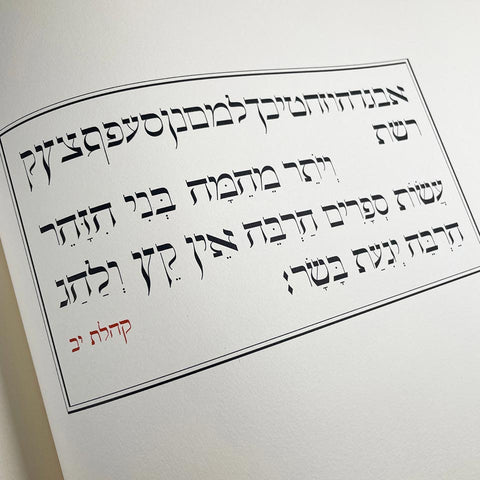 אבגדהוזחטיכךלמםנןסעפףצץק
רשת וְיֹתֵר מֵהֵמָּה בְּנִי הִזָּהֵר
עֲשׂוֹת סְפָרִים הַרְבֵּה אֵין קֵץ וְלַהַג
הַרְבֵּה יְגִעַת בָּשָׂר׃
קהלת יב